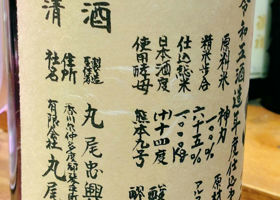 令和五酒造年度仕込
原料米 神力 原材
精米歩合 六十五% アル
仕込総米 一〇〇〇kg
日本酒度 十四度
使用酵母 熊本九号
丸尾忠興
住所 香川県仲多度郡琴平
社名 有限会社 丸尾
清酒